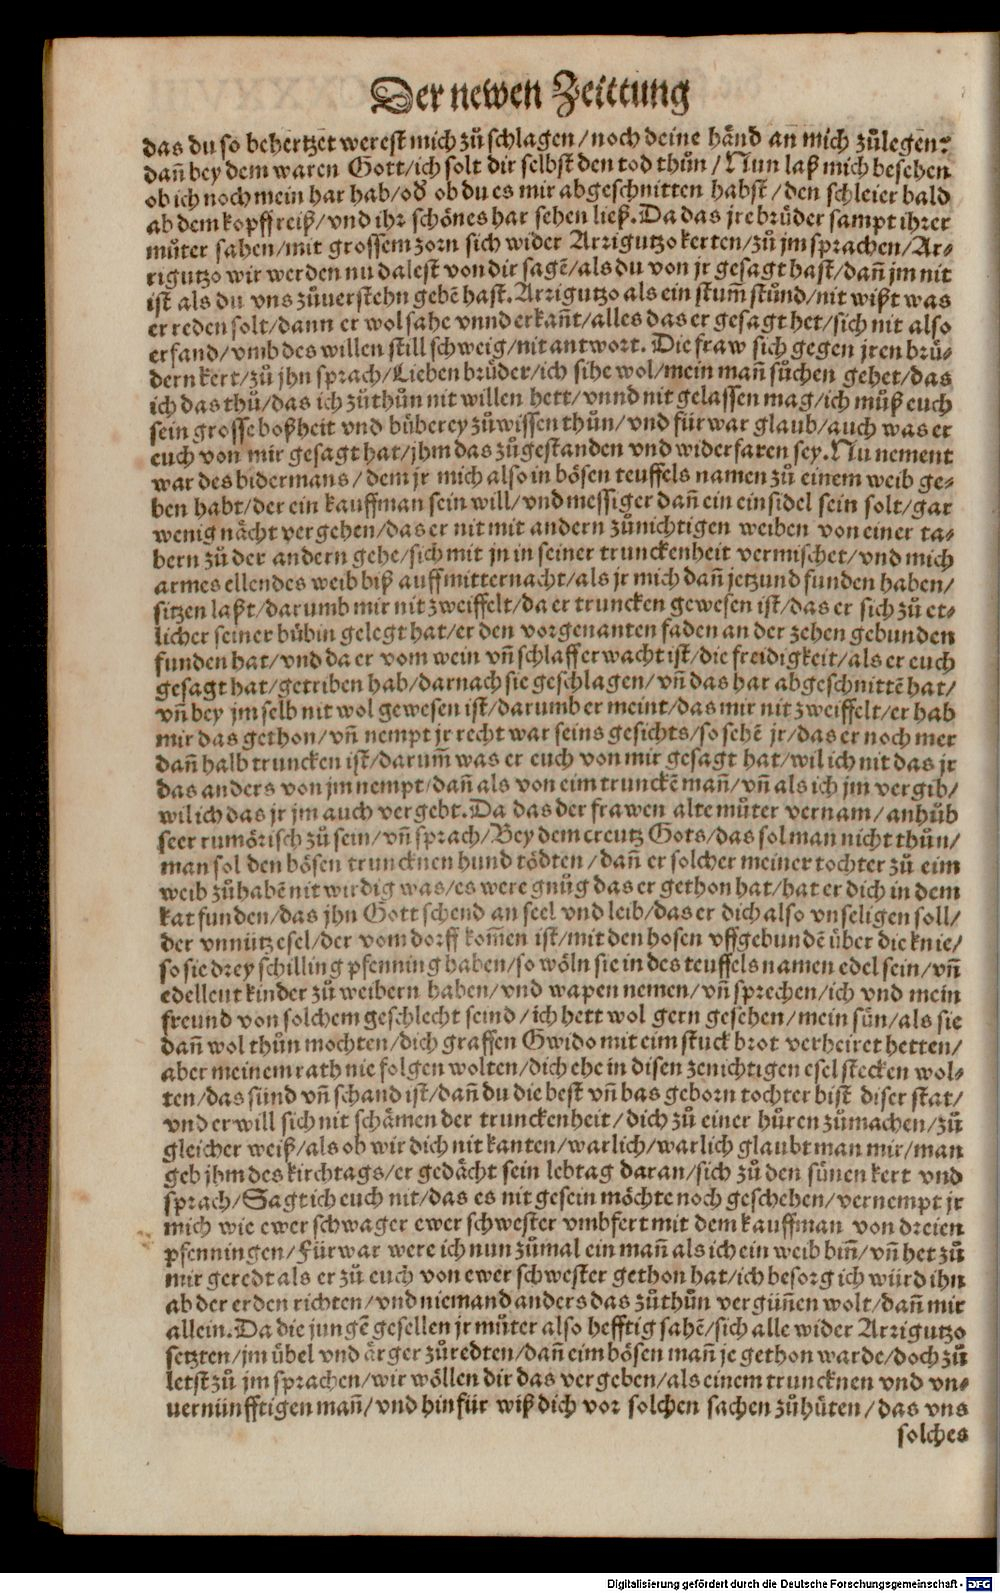 Der newen Zeittung
das du so behertzet werest mich zů schlagen/noch deine händ an mich zůlegen?
dañ bey dem waren Gott/ich solt dir selbst den tod thůn/Nun laß mich besehen
ob ich noch mein har hab/oď ob du es mir abgeschnitten habst/den schleier bald
ab dem kopff reiß/vnd ihr schönes har sehen ließ. Da das jre brůder sampt ihrer
můter sahen/mit grossem zorn sich wider Arrigutzo kerten/zů jm sprachen/Ar-
rigutzo wir werden nu dalest von dir sagē/als du von jr gesagt hast/dañ jm nit
ist als du vns zůuerstehn gebē hast. Arrigutzo als ein stum̃ stůnd/nit wißt was
er reden solt/dann er wol sahe vnnd erkañt/alles das er gesagt het/sich nit also
erfand/vmb des willen still schweig/nit antwort. Die fraw sich gegen jren brů-
dern kert/zů jhn sprach/Lieben brůder/ich sihe wol/mein mañ sůchen gehet/das
ich das thů/das ich zů thůn nit willen hett/vnnd nit gelassen mag/ich můß euch
sein grosse boßheit vnd bůberey zůwissen thůn/vnd fürwar glaub/auch was er
euch von mir gesagt hat/jhm das zůgestanden vnd widerfaren sey. Nu nement
war des bidermans/dem jr mich also in bösen teuffels namen zů einem weib ge-
ben habt/der ein kauffman sein will/vnd messiger dañ ein einsidel sein solt/gar
wenig nächt vergehen/das er nit mit andern zůnichtigen weiben von einer ta-
bern zů der andern gehe/sich mit jn in seiner trunckenheit vermischet/vnd mich
armes ellendes weib biß auff mitternacht/als jr mich dañ jetzund funden haben/
sitzen laßt/darumb mir nit zweiffelt/da er truncken gewesen ist/das er sich zů et-
licher seiner bůbin gelegt hat/er den vorgenanten faden an der zehen gebunden
funden hat/vnd da er vom wein vñ schlaff erwacht ist/die freidigkeit/als er euch
gesagt hat/getriben hab/darnach sie geschlagen/vñ das har abgeschnittē hat/
vñ bey jm selb nit wol gewesen ist/darumb er meint/das mir nit zweiffelt/er hab
mir das gethon/vñ nempt jr recht war seins gesichts/so sehē jr/das er noch mer
dañ halb truncken ist/darum̃ was er euch von mir gesagt hat/wil ich nit das jr
das anders von jm nempt/dañ als von eim trunckē mañ/vñ als ich jm vergib/
wil ich das jr jm auch vergebt. Da das der frawen alte můter vernam/anhůb
seer rumörisch zů sein/vñ sprach/Bey dem creutz Gots/das sol man nicht thůn/
man sol den bösen truncknen hund tödten/dañ er solcher meiner tochter zů eim
weib zůhabē nit wirdig was/es were gnůg das er gethon hat/hat er dich in dem
kat funden/das jhn Gott schend an seel vnd leib/das er dich also vnseligen soll/
der vnnütz esel/der vom dorff kom̃en ist/mit den hosen vffgebundē über die knie/
so sie drey schilling pfenning haben/so wöln sie in des teuffels namen edel sein/vñ
edelleut kinder zů weibern haben/vnd wapen nemen/vñ sprechen/ich vnd mein
freund von solchem geschlecht seind/ich hett wol gern gesehen/mein sün/als sie
dañ wol thůn mochten/dich graffen Gwido mit eim stuck brot verheiret hetten/
aber meinem rath nie folgen wolten/dich ehe in disen zenichtigen esel stecken wol-
ten/das sünd vñ schand ist/dañ du die best vñ bas geborn tochter bist diser stat/
vnd er will sich nit schämen der trunckenheit/dich zů einer hůren zůmachen/zů
gleicher weiß/als ob wir dich nit kanten/warlich/warlich glaubt man mir/man
geb jhm des kirchtags/er gedächt sein lebtag daran/sich zů den sünen kert vnd
sprach/Sagt ich euch nit/das es nit gesein möchte noch geschehen/vernempt jr
mich wie ewer schwager ewer schwester vmbfert mit dem kauffman von dreien
pfenningen/Fürwar were ich nun zůmal ein mañ als ich ein weib biñ/vñ het zů
mir geredt als er zů euch von ewer schwester gethon hat/ich besorg ich würd ihn
ab der erden richten/vnd niemand anders das zůthůn vergünen wolt/dañ mir
allein. Da die jungē gesellen jr můter also hefftig sahē/sich alle wider Arrigutzo
setzten/jm übel vnd ärger zůredten/dañ eim bösen mañ je gethon warde/doch zů
letst zů jm sprachen/wir wöllen dir das vergeben/als einem truncknen vnd vn-
uernünfftigen mañ/vnd hinfür wiß dich vor solchen sachen zůhüten/das vns
solches
Digitalisierung gefördert durch die Deutsche Forschungsgemeinschaft - DFG